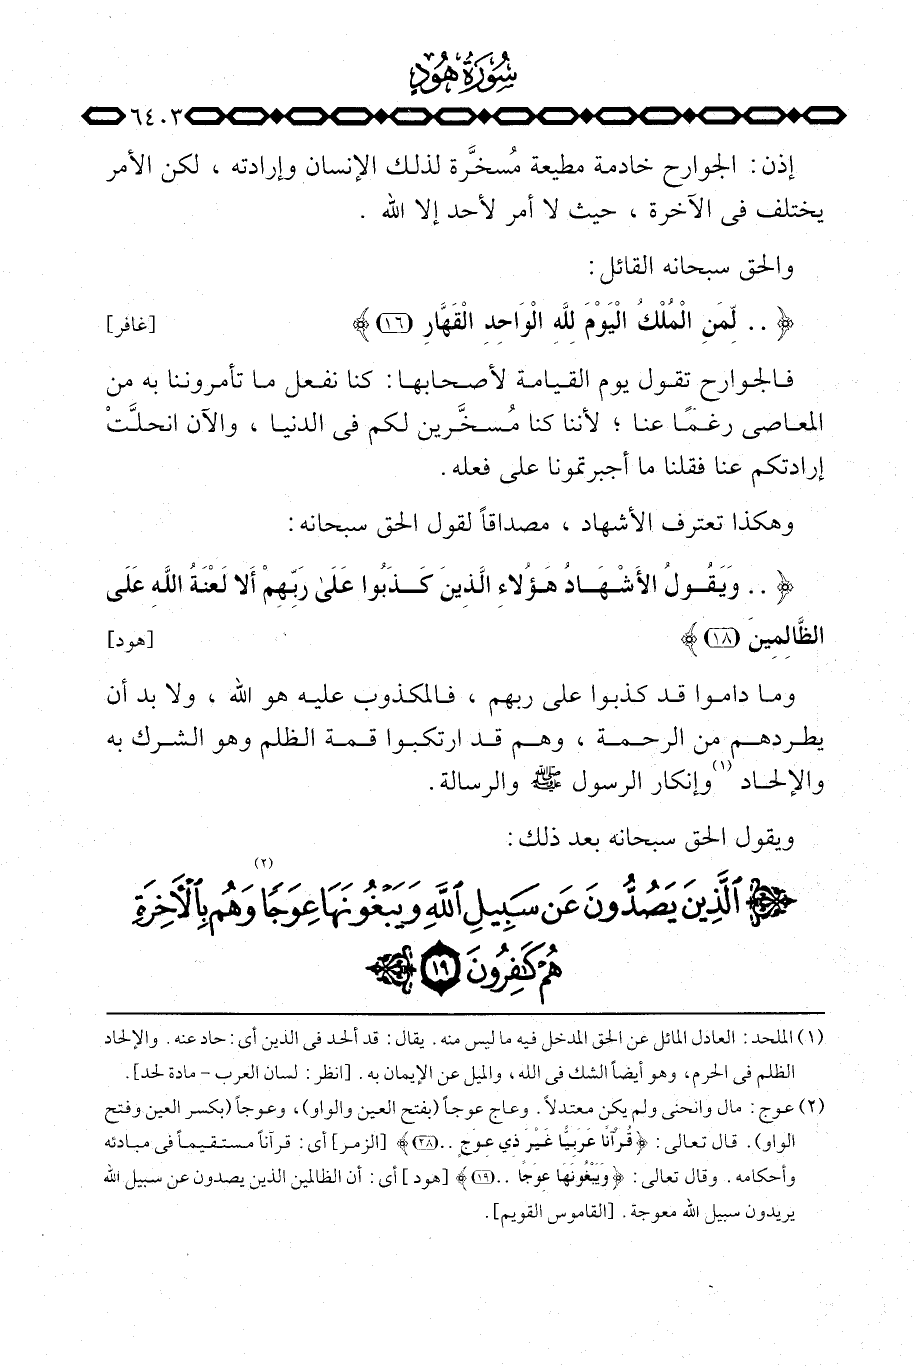 سُورَةُ هُودٍ
٦٤٠٣
إذن : الجوارح خادمة مطيعة مُسخَّرة لذلك الإنسان وإرادته ، لكن الأمر
يختلف فى الآخرة ، حيث لا أمر لأحد إلا الله .
والحق سبحانه القائل :
﴿ .. لِّمَنِ الْمُلْكُ الْيَوْمَ لِلَّهِ الْوَاحِدِ الْقَهَّارِ (١٦) ﴾ [غافر]
فالجوارح تقول يوم القيامة لأصحابها : كنا نفعل ما تأمروننا به من
المعاصى رغمًا عنا ؛ لأننا كنا مُسخَّرين لكم فى الدنيا ، والآن انحلَّتْ
إرادتكم عنا فقلنا ما أجبرتمونا على فعله .
وهكذا تعترف الأشهاد ، مصداقاً لقول الحق سبحانه :
﴿ .. وَيَقُولُ الأَشْهَادُ هَؤُلاءِ الَّذِينَ كَذَبُوا عَلَىٰ رَبِّهِمْ أَلا لَعْنَةُ اللَّهِ عَلَى
الظَّالِمِينَ (١٨) ﴾ [هود]
وما داموا قد كذبوا على ربهم ، فالمكذوب عليه هو الله ، ولا بد أن
يطردهم من الرحمة ، وهم قد ارتكبوا قمة الظلم وهو الشرك به
والإلحاد (١) وإنكار الرسول ﷺ والرسالة .
ويقول الحق سبحانه بعد ذلك :
﴿ ٱلَّذِينَ يَصُدُّونَ عَن سَبِيلِ ٱللَّهِ وَيَبْغُونَهَا عِوَجًا (٢) وَهُم بِٱلْأَخِرَةِ
هُمْ كَٰفِرُونَ ١٩ ﴾
(١) الملحد : العادل المائل عن الحق المدخل فيه ما ليس منه . يقال : قد ألحد فى الدين أى : حاد عنه . والإلحاد
الظلم فى الحرم ، وهو أيضاً الشك فى الله ، والميل عن الإيمان به . [انظر : لسان العرب – مادة لحد] .
(٢) عوج : مال وانحنى ولم يكن معتدلاً . وعاج عوجاً (بفتح العين والواو) ، وعوجاً (بكسر العين وفتح
الواو) . قال تعالى : ﴿ قُرْآنًا عَرَبِيًّا غَيْرَ ذِي عِوَجٍ .. (٢٨) ﴾ [الزمر] أى : قرآناً مستقيماً فى مبادئه
وأحكامه . وقال تعالى : ﴿ وَيَبْغُونَهَا عِوَجًا .. (١٩) ﴾ [هود] أى : أن الظالمين الذين يصدون عن سبيل الله
يريدون سبيل الله معوجة . [القاموس القويم] .